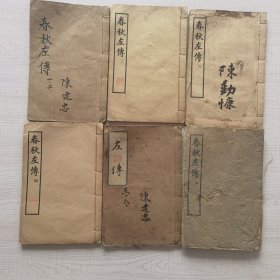 春秋左傳
陳建忠
春秋左傳
春秋左傳
陳勤慷
春秋左傳
四
左傳
陳建忠
春秋左傳